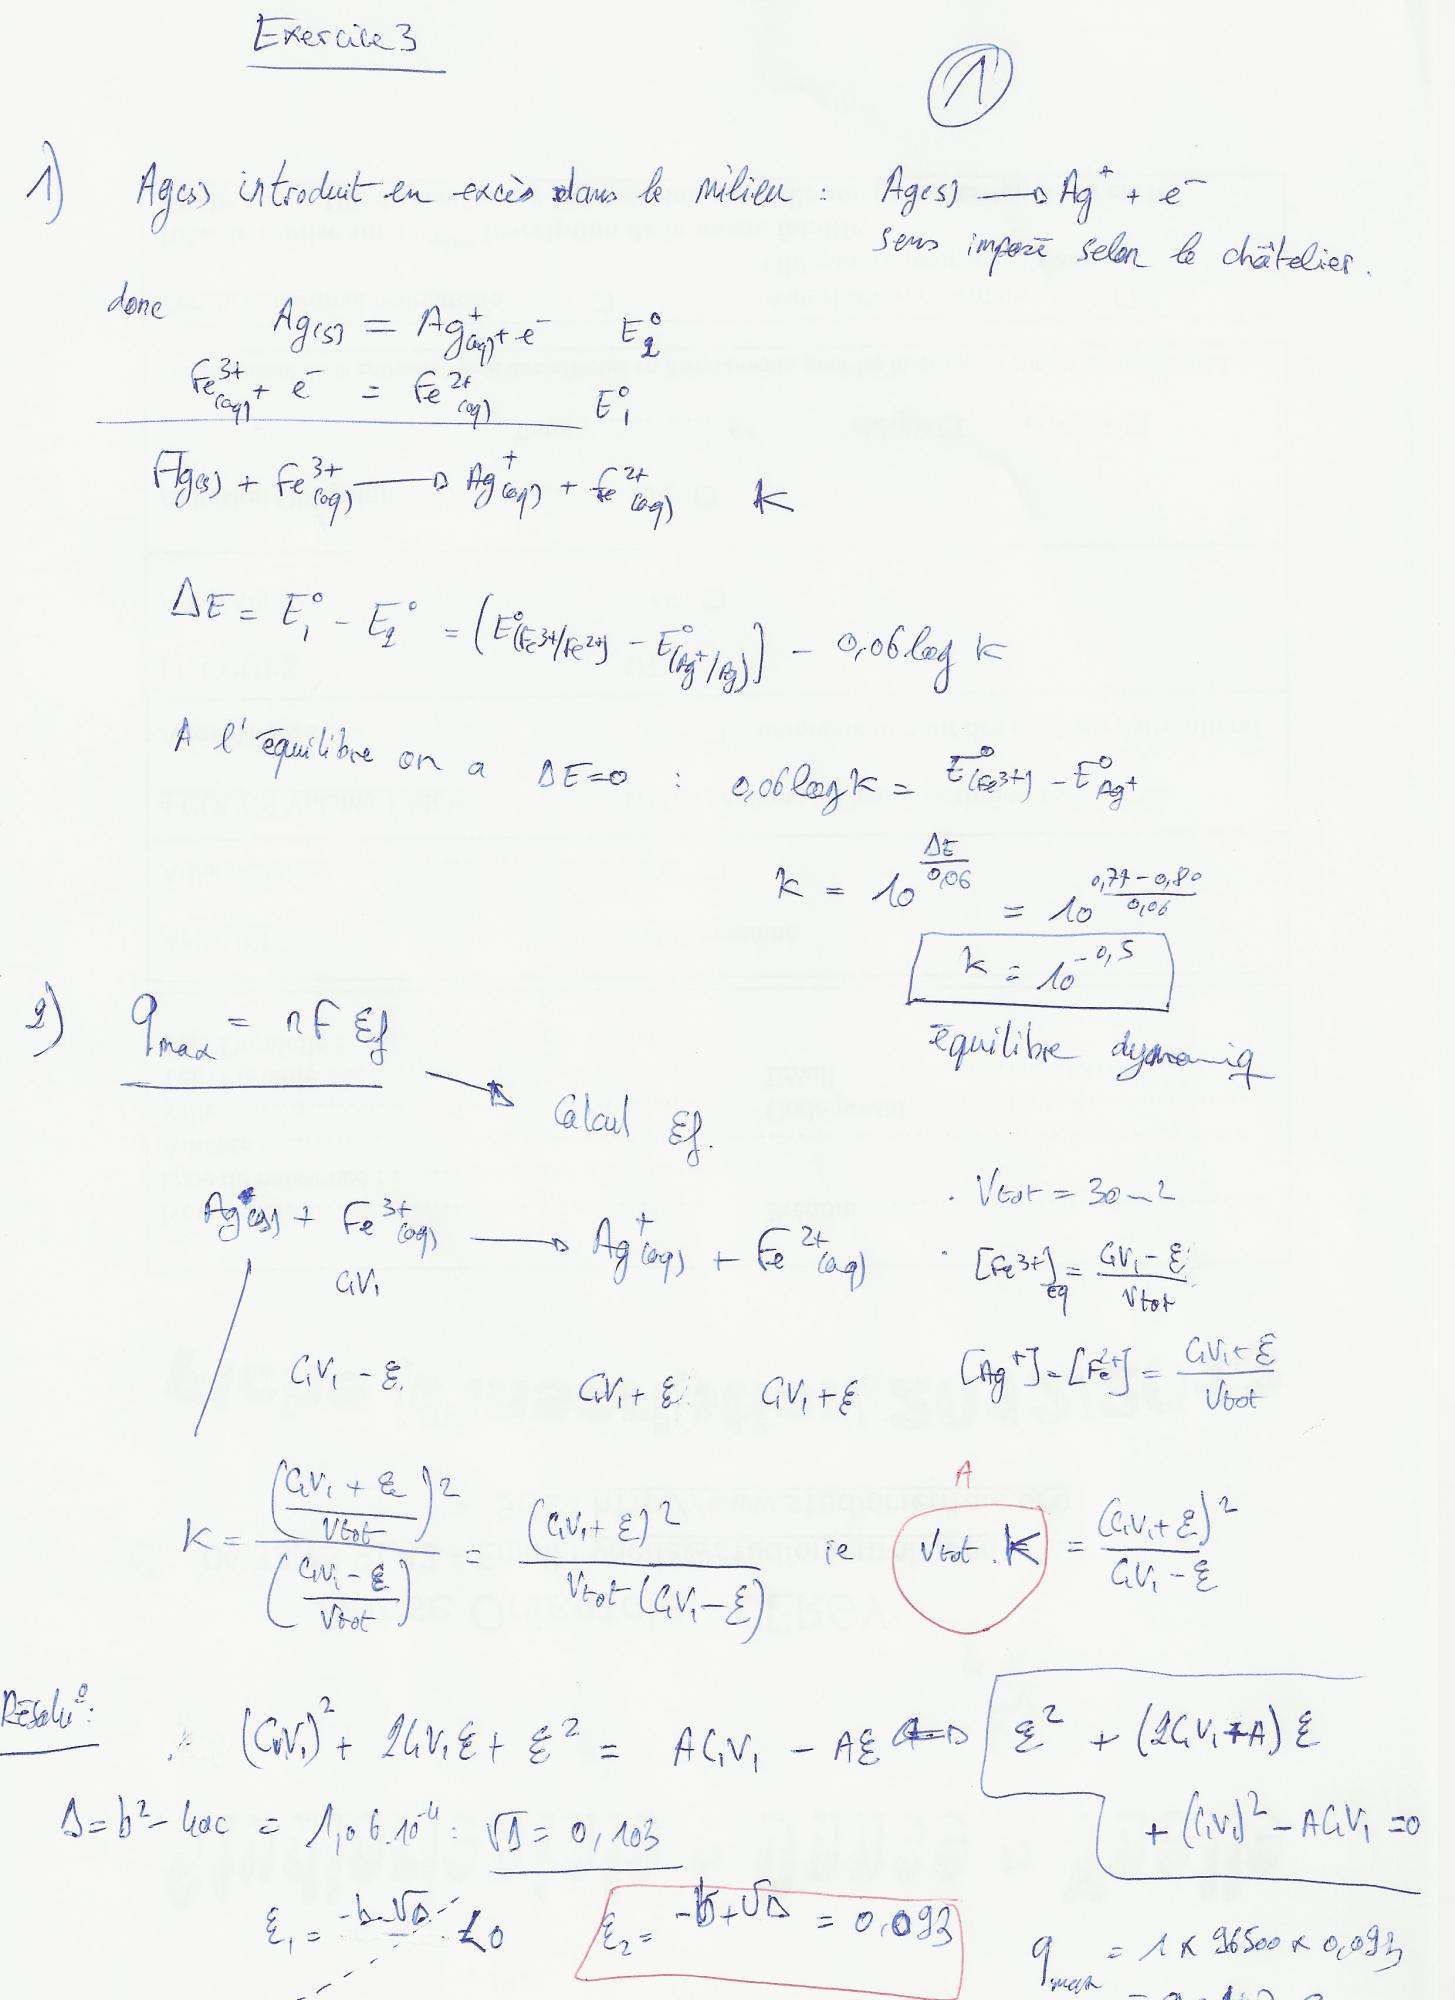 Exercice 3
1
1) Ag(s) introduit en excès dans le milieu : Ag(s) → Ag⁺ + e⁻
sens imposé selon le châtelier.
donc Ag(s) = Ag⁺(aq) + e⁻ E₂°
Fe³⁺(aq) + e⁻ = Fe²⁺(aq) E₁°
Ag(s) + Fe³⁺(aq) → Ag⁺(aq) + Fe²⁺(aq) K
ΔE = E₁° - E₂° = (E°(Fe³⁺/Fe²⁺) - E°(Ag⁺/Ag)) - 0,06 log K
A l'équilibre on a ΔE=0 : 0,06 log K = E°(Fe³⁺) - E°Ag⁺
K = 10^(ΔE/0,06) = 10^((0,77-0,80)/0,06)
K = 10^(-0,5)
équilibre dynamiq
2) qmax = nF ξf
Calcul ξf.
Ag(s) + Fe³⁺(aq) → Ag⁺(aq) + Fe²⁺(aq)
C₁V₁
C₁V₁ - ξ C₁V₁ + ξ C₁V₁ + ξ
· Vtot = 30 mL
· [Fe³⁺]eq = (C₁V₁ - ξ)/Vtot
[Ag⁺] = [Fe²⁺] = (C₁V₁ + ξ)/Vtot
A
K = ((C₁V₁ + ξ)/Vtot)² / ((C₁V₁ - ξ)/Vtot) = (C₁V₁ + ξ)² / (Vtot (C₁V₁ - ξ)) ie Vtot . K = (C₁V₁ + ξ)² / (C₁V₁ - ξ)
Résolu°: (C₁V₁)² + 2C₁V₁ξ + ξ² = AC₁V₁ - Aξ ⟺ ξ² + (2C₁V₁ + A) ξ
+ (C₁V₁)² - AC₁V₁ = 0
Δ = b² - 4ac = 1,06.10⁻⁴ : √Δ = 0,103
ξ₁ = -b-√Δ <0 ξ₂ = -b+√Δ = 0,093
qmax = 1 × 96500 × 0,093